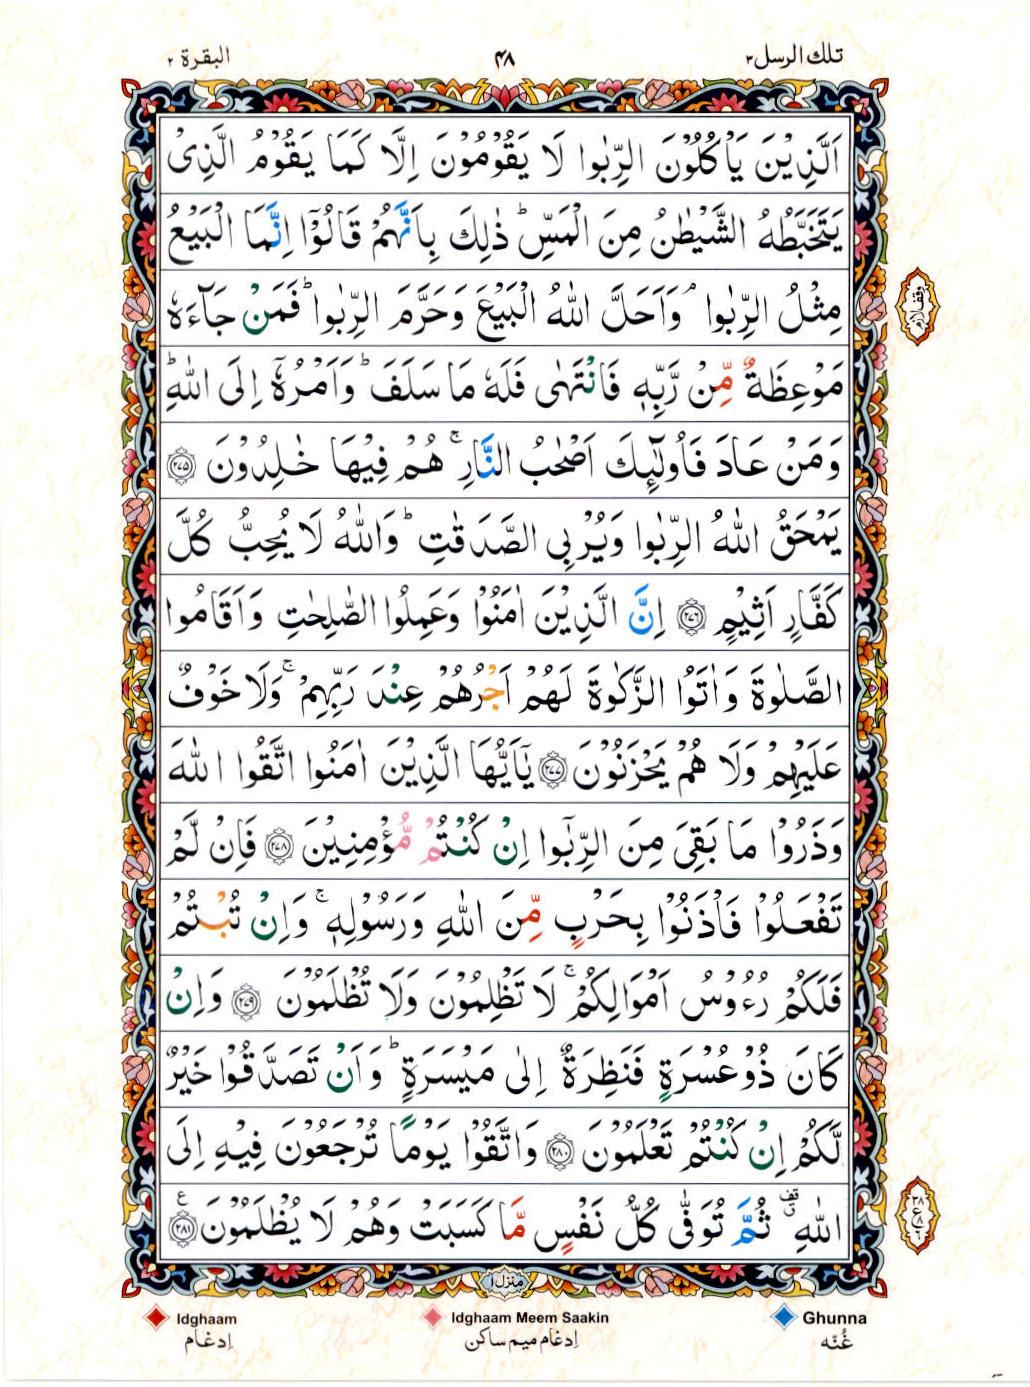 تلك الرسل ٣
٤٨
البقرة ٢
اَلَّذِیْنَ یَاْكُلُوْنَ الرِّبٰوا لَا یَقُوْمُوْنَ اِلَّا كَمَا یَقُوْمُ الَّذِیْ
یَتَخَبَّطُهُ الشَّیْطٰنُ مِنَ الْمَسِّ ؕ ذٰلِكَ بِاَنَّهُمْ قَالُوْۤا اِنَّمَا الْبَیْعُ
مِثْلُ الرِّبٰوا ۘ وَاَحَلَّ اللّٰهُ الْبَیْعَ وَحَرَّمَ الرِّبٰوا ؕ فَمَنْ جَآءَهٗ
مَوْعِظَةٌ مِّنْ رَّبِّهٖ فَانْتَهٰی فَلَهٗ مَا سَلَفَ ؕ وَاَمْرُهٗۤ اِلَی اللّٰهِ ؕ
وَمَنْ عَادَ فَاُولٰٓئِكَ اَصْحٰبُ النَّارِ ۚ هُمْ فِیْهَا خٰلِدُوْنَ ﴿۲۷۵﴾
یَمْحَقُ اللّٰهُ الرِّبٰوا وَیُرْبِی الصَّدَقٰتِ ؕ وَاللّٰهُ لَا یُحِبُّ كُلَّ
كَفَّارٍ اَثِیْمٍ ﴿۲۷۶﴾ اِنَّ الَّذِیْنَ اٰمَنُوْا وَعَمِلُوا الصّٰلِحٰتِ وَاَقَامُوا
الصَّلٰوةَ وَاٰتَوُا الزَّكٰوةَ لَهُمْ اَجْرُهُمْ عِنْدَ رَبِّهِمْ ۚ وَلَا خَوْفٌ
عَلَیْهِمْ وَلَا هُمْ یَحْزَنُوْنَ ﴿۲۷۷﴾ یٰۤاَیُّهَا الَّذِیْنَ اٰمَنُوا اتَّقُوا اللّٰهَ
وَذَرُوْا مَا بَقِیَ مِنَ الرِّبٰۤوا اِنْ كُنْتُمْ مُّؤْمِنِیْنَ ﴿۲۷۸﴾ فَاِنْ لَّمْ
تَفْعَلُوْا فَاْذَنُوْا بِحَرْبٍ مِّنَ اللّٰهِ وَرَسُوْلِهٖ ۚ وَاِنْ تُبْتُمْ
فَلَكُمْ رُءُوْسُ اَمْوَالِكُمْ ۚ لَا تَظْلِمُوْنَ وَلَا تُظْلَمُوْنَ ﴿۲۷۹﴾ وَاِنْ
كَانَ ذُوْ عُسْرَةٍ فَنَظِرَةٌ اِلٰی مَیْسَرَةٍ ؕ وَاَنْ تَصَدَّقُوْا خَیْرٌ
لَّكُمْ اِنْ كُنْتُمْ تَعْلَمُوْنَ ﴿۲۸۰﴾ وَاتَّقُوْا یَوْمًا تُرْجَعُوْنَ فِیْهِ اِلَی
اللّٰهِ ۫ۗ ثُمَّ تُوَفّٰی كُلُّ نَفْسٍ مَّا كَسَبَتْ وَهُمْ لَا یُظْلَمُوْنَ ﴿۲۸۱﴾ ع
وقف لازم
منزل ١
Ghunna
غُنّه
Idghaam Meem Saakin
اِدغام میم ساکن
Idghaam
اِدغام